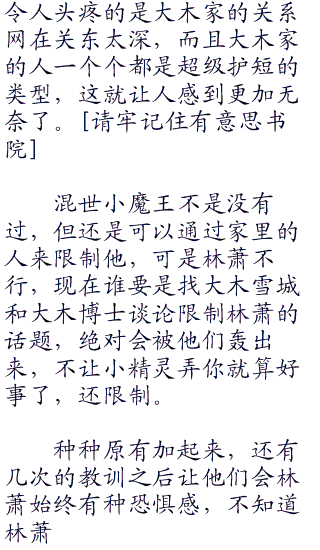 令人头疼的是大木家的关系
网在关东太深，而且大木家
的人一个个都是超级护短的
类型，这就让人感到更加无
奈了。[请牢记住有意思书
院]
混世小魔王不是没有
过，但还是可以通过家里的
人来限制他，可是林萧不
行，现在谁要是找大木雪城
和大木博士谈论限制林萧的
话题，绝对会被他们轰出
来，不让小精灵弄你就算好
事了，还限制。
种种原有加起来，还有
几次的教训之后让他们会林
萧始终有种恐惧感，不知道
林萧